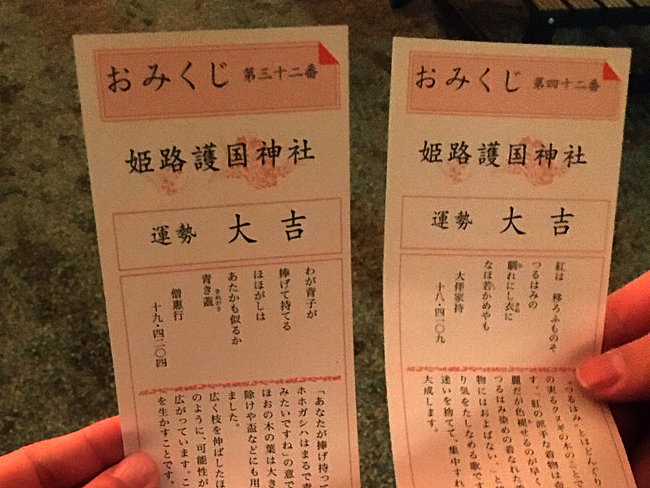 おみくじ 第三十二番
姫路護国神社
運勢 大吉
わが背子が
捧げて持てる
ほほがしは
あたかも似るか
青き蓋
きぬがさ
僧恵行
十九・四二〇四
「あなたが捧げ持って
ホホガシハはまるで青
みたいですね」の意で
ほおの木の葉は大き
除けや盃などにも用
ました。
広く枝を伸ばしたほ
のように、可能性が
広がっています。こ
を生かすことです。
おみくじ 第四十二番
姫路護国神社
運勢 大吉
紅は 移ろふものそ
つるはみの
馴れにし衣に
なほ若かめやも
大伴家持
十八・四一〇九
「つるはみ」とはどんぐり
の実るクヌギの木のことで
す。「紅の派手な着物は
麗だが色褪せるのが早く
つるはみ染めの着なれた
物にはおよばない。」と
り気をたしなめる歌です
迷いを捨てて、集中すれ
大成します。